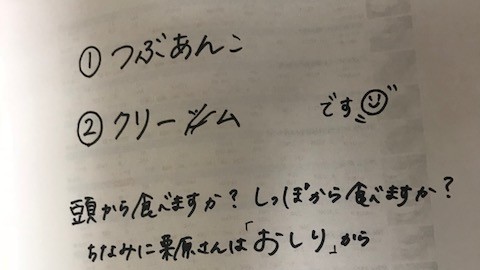 ① つぶあんこ
② クリーム です
頭から食べますか? しっぽから食べますか?
ちなみに栗原さんは「おしり」から